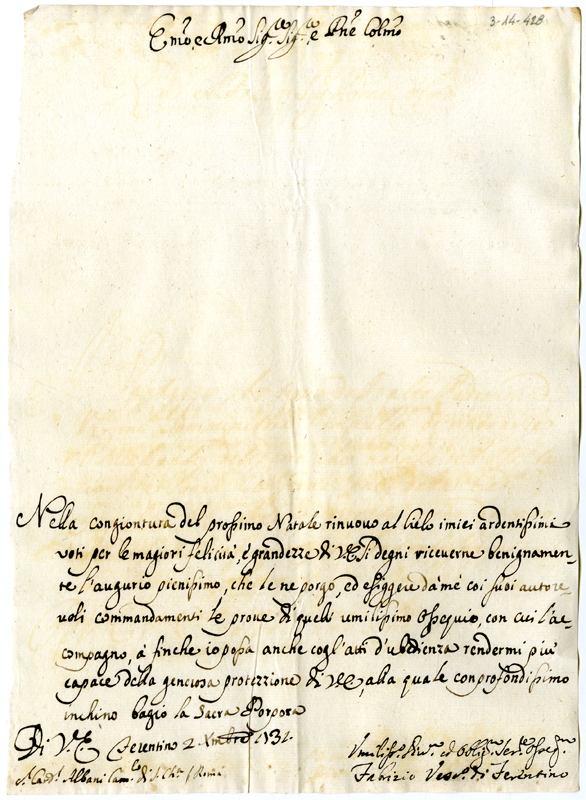 3-14-428
Em̃o, e Rm̃o Sig.re Sig.re e Pñe Colm̃o
Nella congiontura del prossimo Natale rinuovo al Cielo i miei ardentissimi
voti per le magiori felicità, e grandezze di V.E. Si degni riceverne benignamen-
te l'augurio pienissimo, che le ne porgo, ed esiggere da me coi suoi autore-
voli commandamenti le prove di quell' umilissimo Ossequio, con cui l'ac-
compagno, à finche io possa anche cogl'atti d'ubedienza rendermi più
capace della generosa protezzione di V.E., alla quale con profondissimo
inchino bagio la Sacra Porpora
Di V.E. Ferentino 2. Xmbre 1731.
Umiliss.o Div.o ed Oblig.mo Ser.re Osseq.mo
S.r Card.l Albani Cam.o di S. Ch.a / Roma
Fabrizio Vesc.o di Ferentino